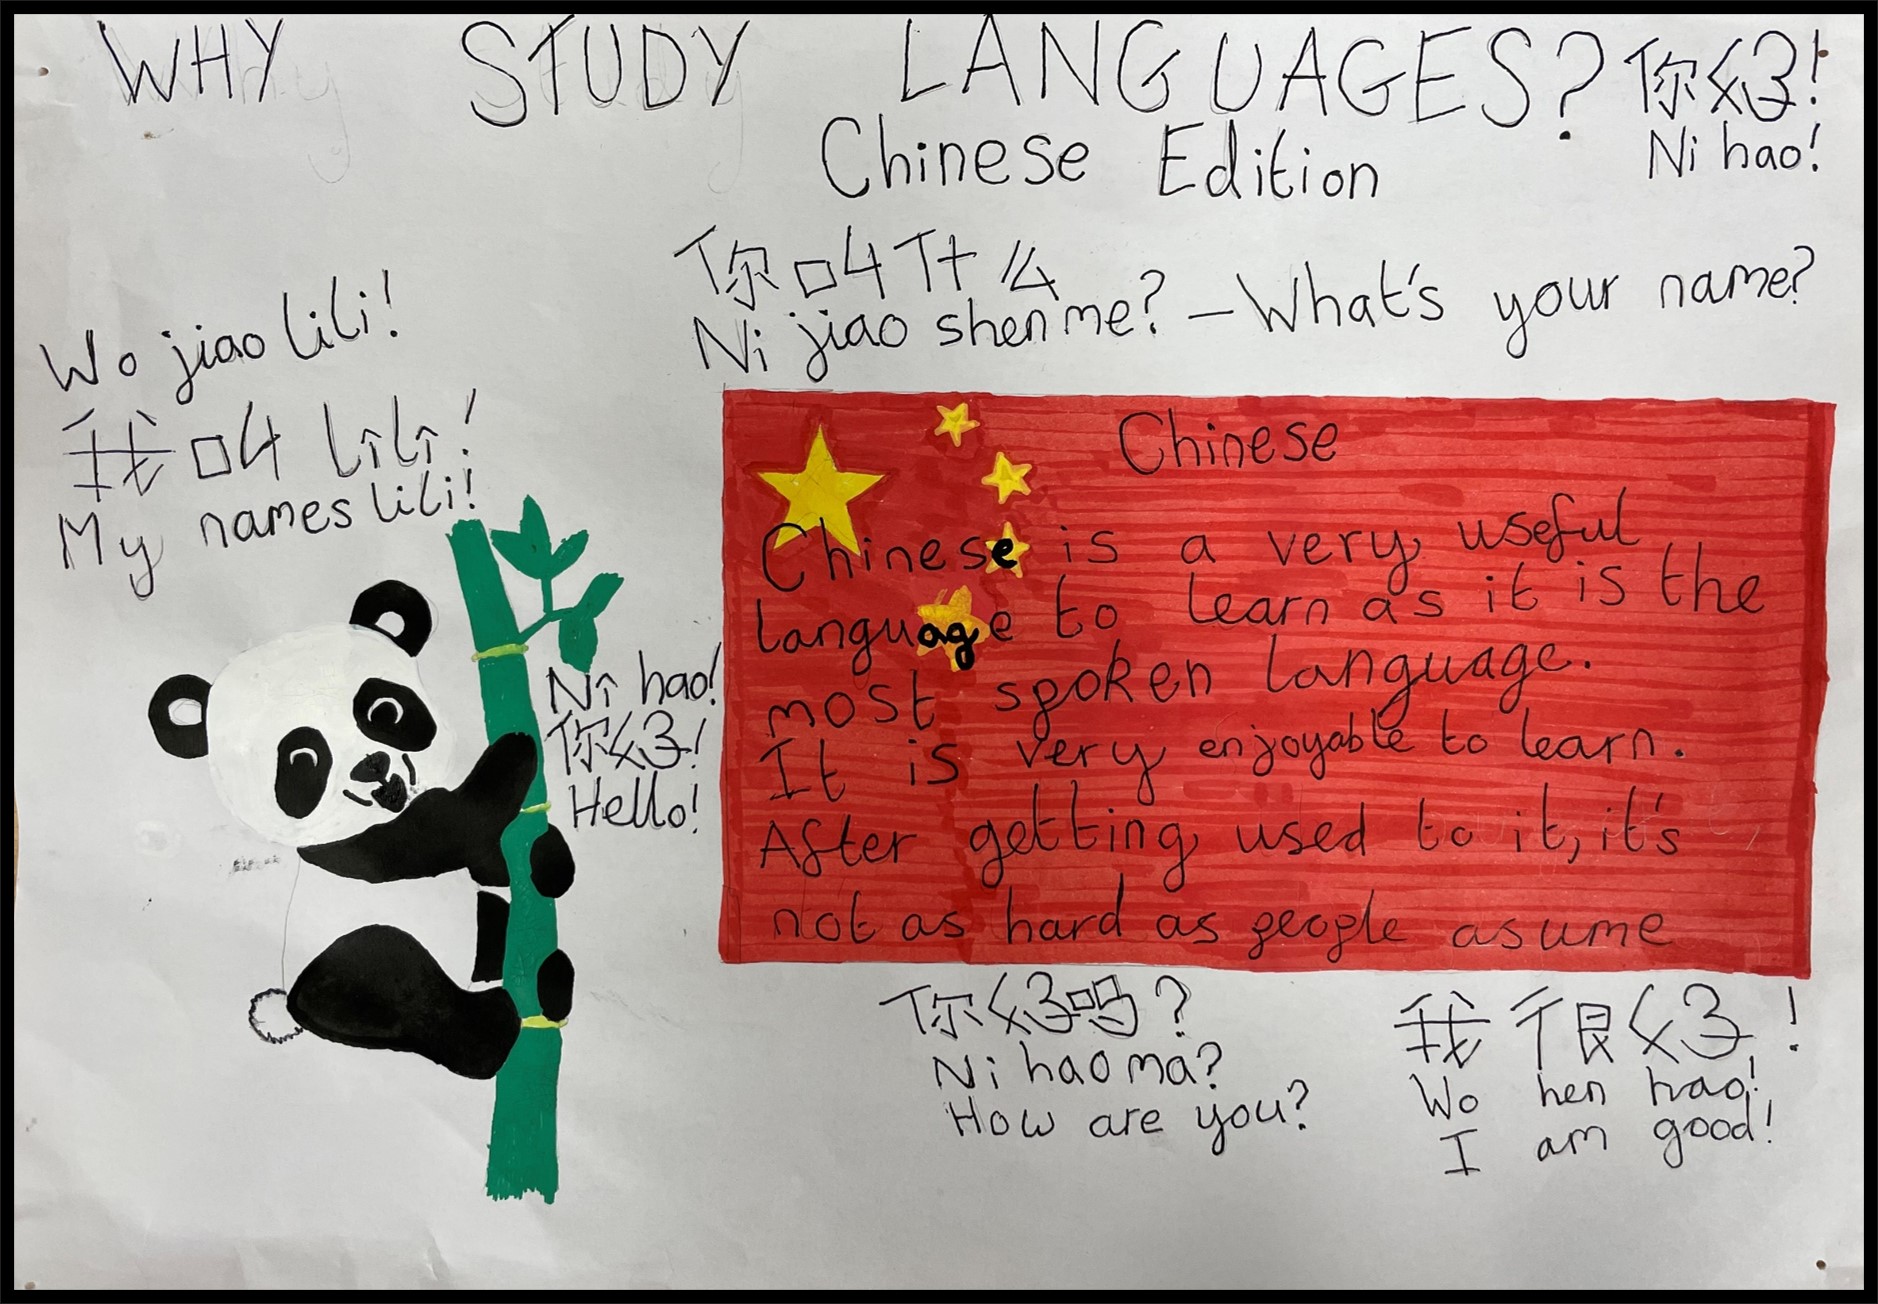 WHY STUDY LANGUAGES? 你好!
Chinese Edition
Ni hao!
你叫什么
Ni jiao shenme? - What's your name?
Wo jiao Lili!
我叫 Lili!
My names Lili!
Ni hao!
你好!
Hello!
Chinese
Chinese is a very useful
language to learn as it is the
most spoken language.
It is very enjoyable to learn.
After getting used to it, it's
not as hard as people asume
你好吗?
Ni hao ma?
How are you?
我很好!
Wo hen hao!
I am good!